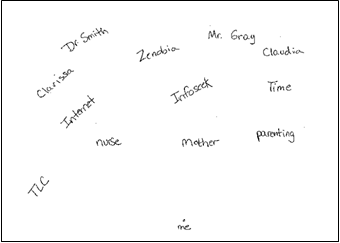 Dr. Smith
Zenobia
Mr. Gray
Claudia
Clarissa
Internet
Infoseek
Time
nurse
Mother
parenting
TLC
me